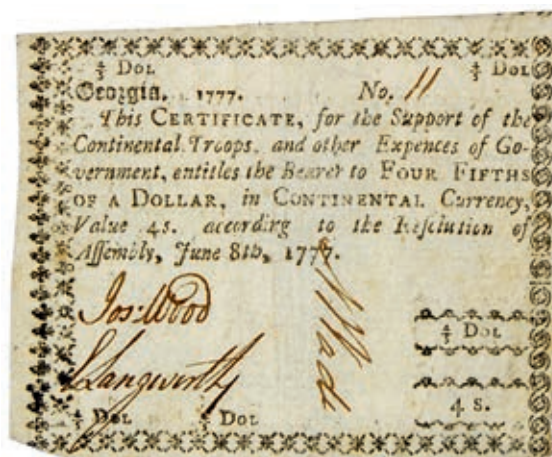 ⅘ Dol ⅘ Dol
Georgia. 1777. No. 11
This CERTIFICATE, for the Support of the
Continental Troops, and other Expences of Go-
vernment, entitles the Bearer to FOUR FIFTHS
OF A DOLLAR, in CONTINENTAL Currency,
Value 4s. according to the Resolution of
Assembly, June 8th, 1777.
Jos: Wood
⅘ Dol
4 s.
⅘ Dol ⅘ Dol